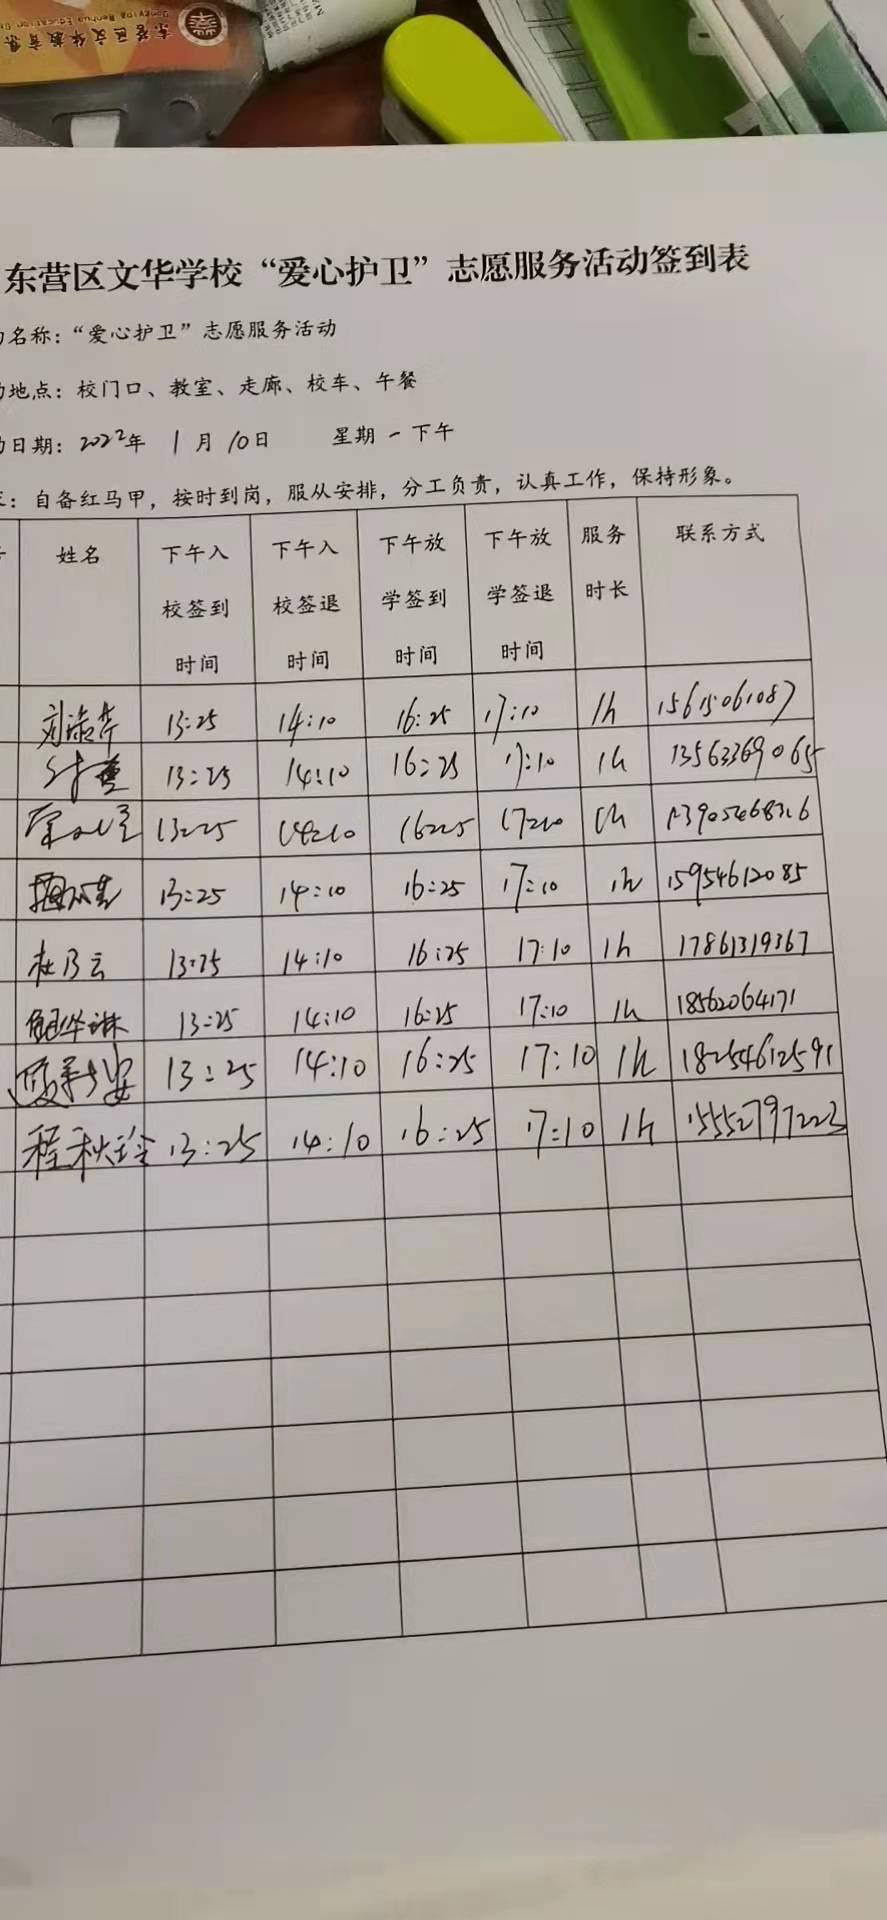 东营区文华学校“爱心护卫”志愿服务活动签到表
名称：“爱心护卫”志愿服务活动
地点：校门口、教室、走廊、校车、午餐
日期：2022年 1月10日 星期一下午
：自备红马甲，按时到岗，服从安排，分工负责，认真工作，保持形象。
姓名 下午入校签到时间 下午入校签退时间 下午放学签到时间 下午放学签退时间 服务时长 联系方式
13:25 14:10 16:25 17:10 1h 15615061087
13:25 14:10 16:25 17:10 1h 13563369065
13:25 14:10 16:25 17:10 1h 13905468326
13:25 14:10 16:25 17:10 1h 15954612085
杜乃云 13:25 14:10 16:25 17:10 1h 17861319367
13:25 14:10 16:25 17:10 1h 18562064171
13:25 14:10 16:25 17:10 1h 18254612591
程秋玲 13:25 14:10 16:25 17:10 1h 15552797223